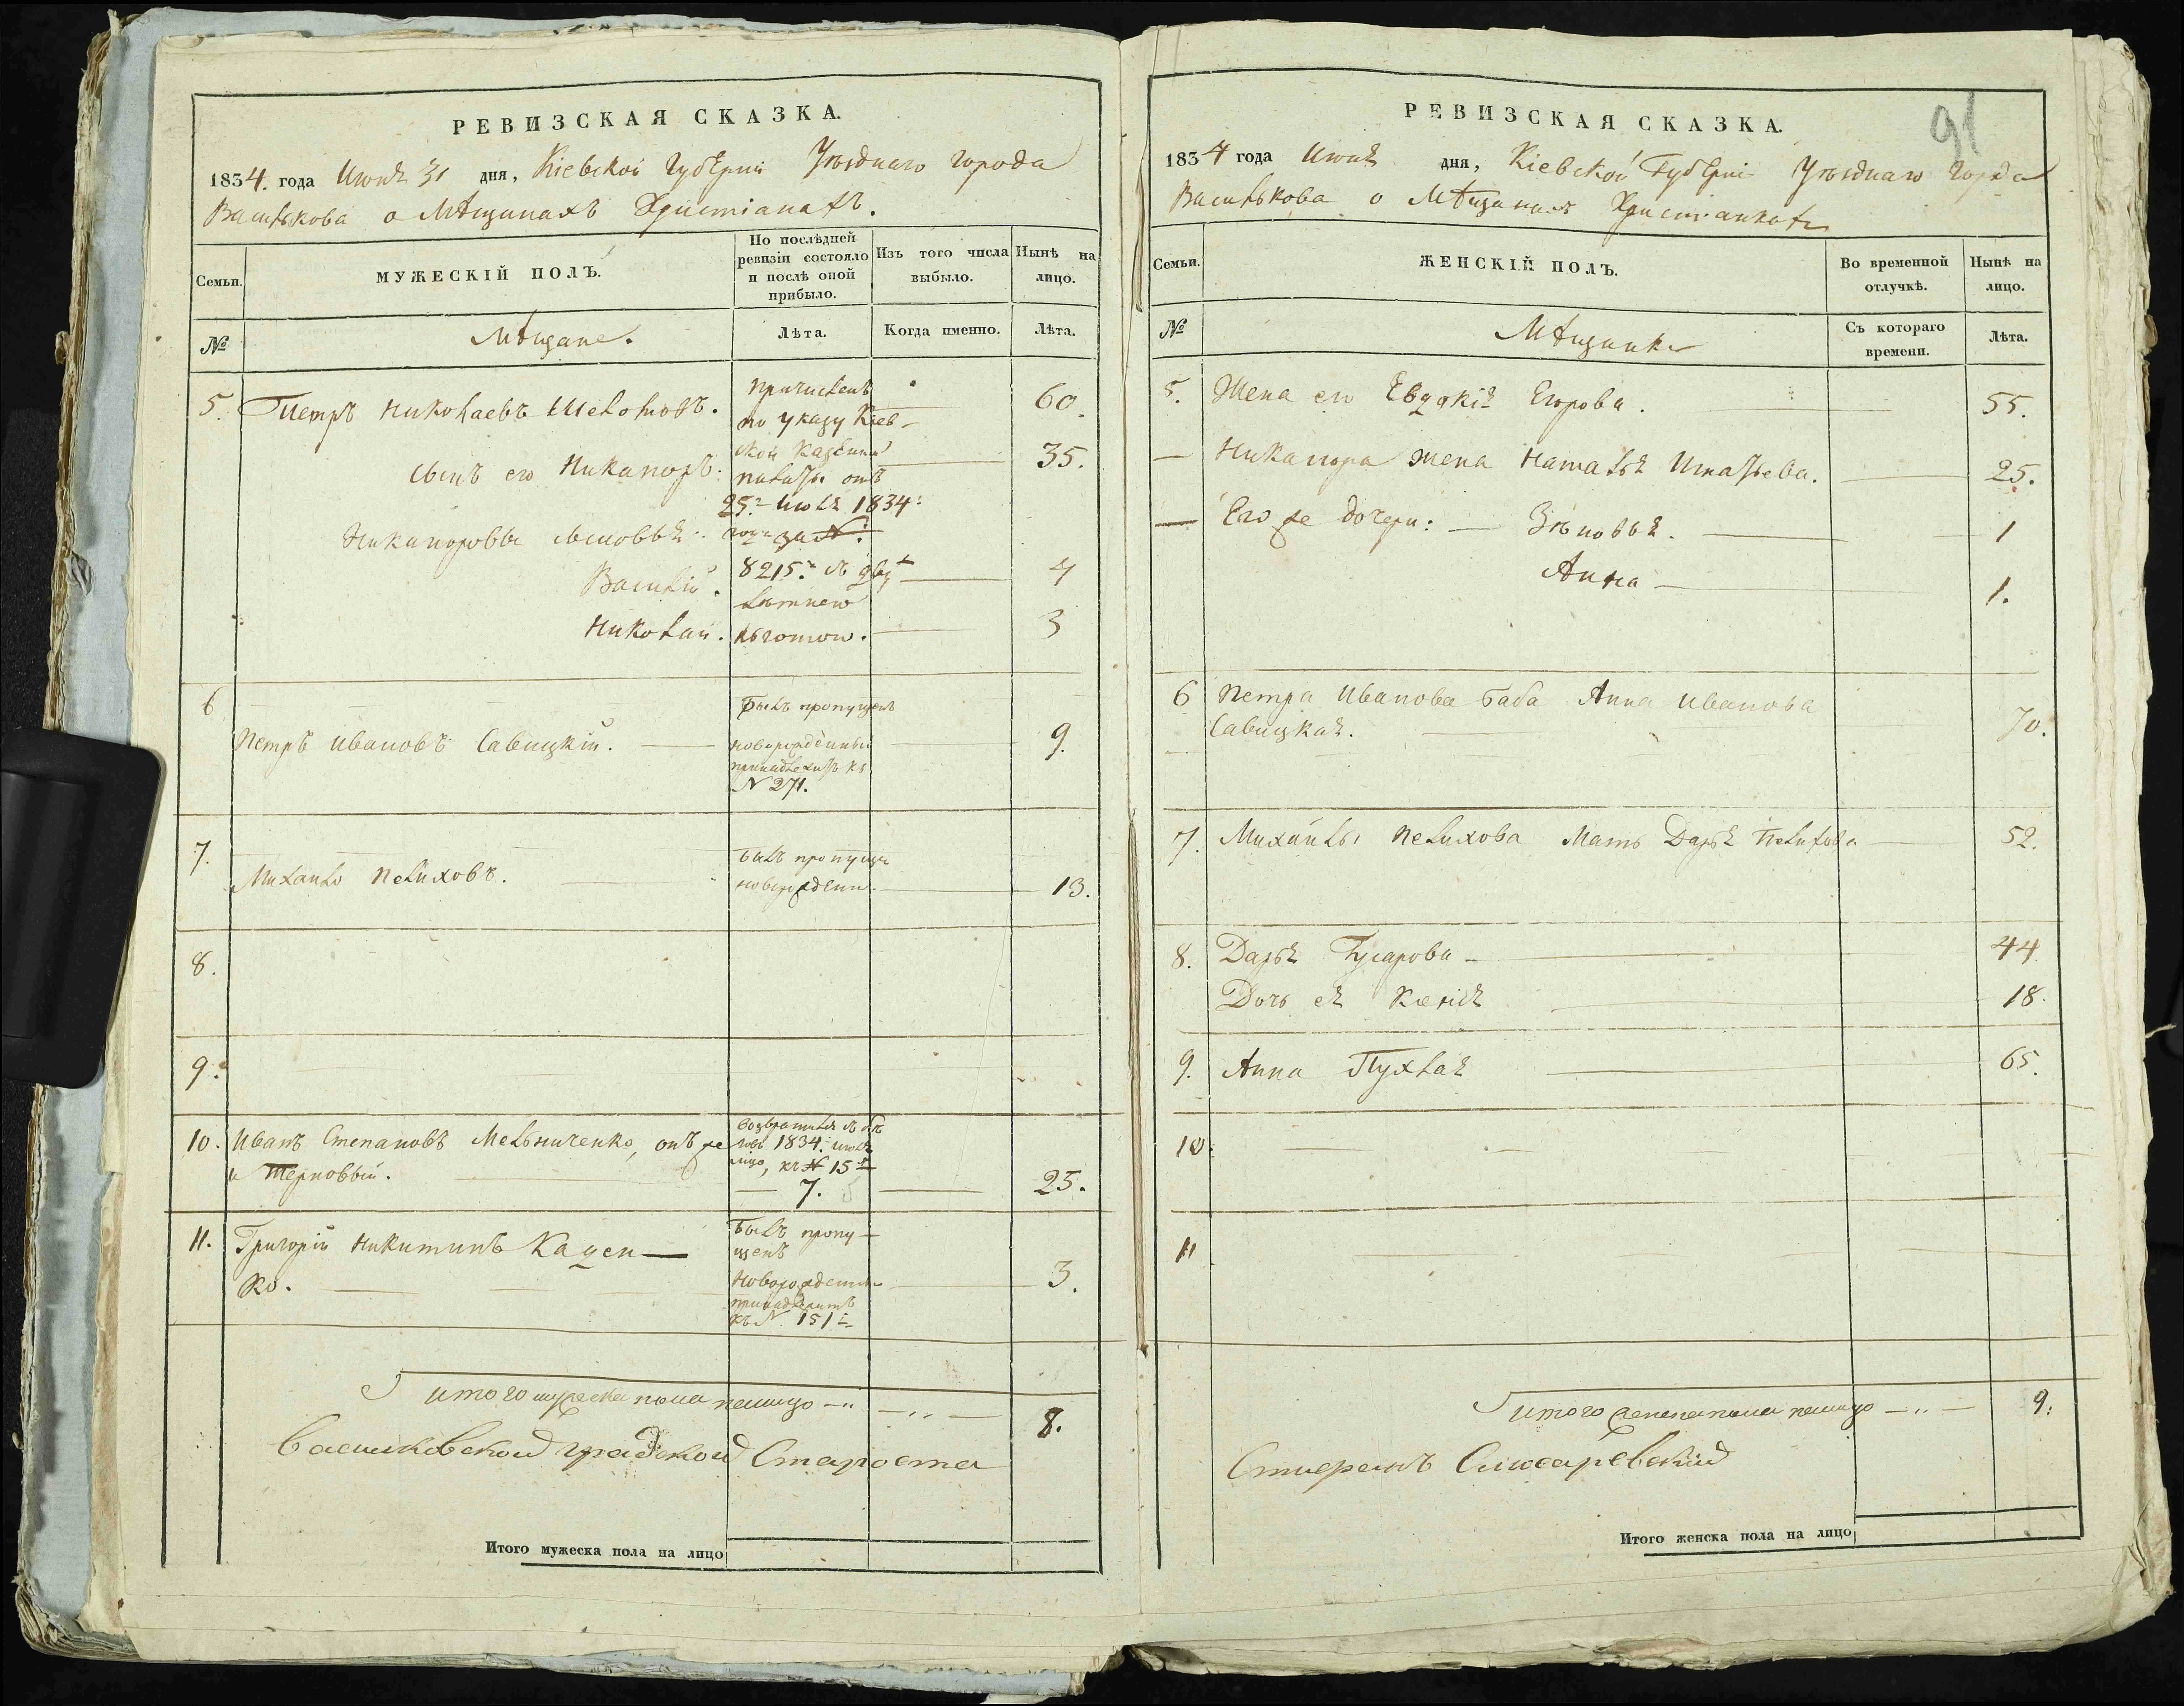 РЕВИЗСКАЯ СКАЗКА.
1834. года Июля 31 дня, Кіевской Губерніи Уѣзднаго города
Василькова о Мѣщанахъ Христіанахъ.
Семьи.
МУЖЕСКІЙ ПОЛЪ.
По послѣдней
ревизіи состояло
и послѣ оной
прибыло.
Изъ того числа
выбыло.
Нынѣ на
лицо.
№
Мѣщане.
Лѣта.
Когда именно.
Лѣта.
5. Петръ Николаевъ
Причисленъ
по указу Кіев-
ской Казенной
палаты отъ
25.го Іюля 1834:
года за №.
8215.мъ съ двух
лѣтнею
льготою.
60.
Сынъ его Никаноръ. 35.
Никаноровы сыновья:
Василій. 4
Николай. 3
6
Петръ Ивановъ Савицкій.
Былъ пропущенъ
новорожденный
принадлежитъ къ
№ 271.
9.
7.
Михайло Пелиховъ.
былъ пропущен
новорожден.
13.
8.
9.
10. Иванъ Степановъ Мельниченко, онъ же
и Терновый.
Возвратился съ бѣ
говъ 1834. июля
къ № 15
7.
25.
11. Григорій Никитинъ Кацен-
ко.
Былъ пропу-
щенъ
Новорожденны
принадлежитъ
къ № 151
3.
Итого мужеска пола налицо 8.
Васильковской градской Староста
Итого мужеска пола на лицо
РЕВИЗСКАЯ СКАЗКА.
91
1834 года Июля дня, Кіевской Губерніи Уѣзднаго Города
Василькова о Мѣщанкахъ Христіанкахъ
Семьи.
ЖЕНСКІЙ ПОЛЪ.
Во временной
отлучкѣ.
Нынѣ на
лицо.
№
Мѣщанки
Съ котораго
времени.
Лѣта.
5. Жена его Евдокія Егорова. 55.
Никанора жена Наталья Игнатьева. 25.
Его же дочери: Зѣновья. 1
Анна 1.
6 Петра Иванова баба Анна Иванова
Савицкая. 70.
7. Михайлы Пелихова Мать Дарья Пелихова 52.
8. Дарья Гусарова 44
Дочь ея Ксенія 18.
9. Анна Пухлая 65.
10.
11
Итого женска пола налицо 9.
Слюсаревскій
Итого женска пола на лицо